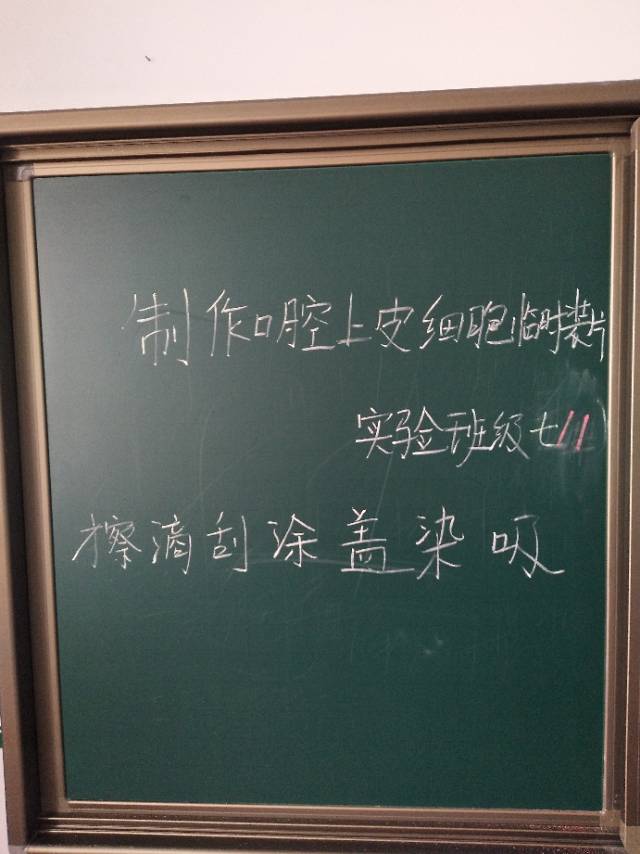 制作口腔上皮细胞临时装片
实验班级七11
擦滴刮涂盖染吸